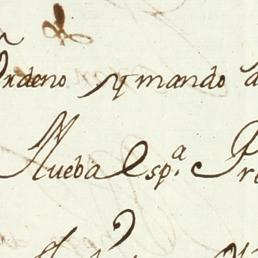 Ordeno y mando a
Nueba Esp.ª Pr